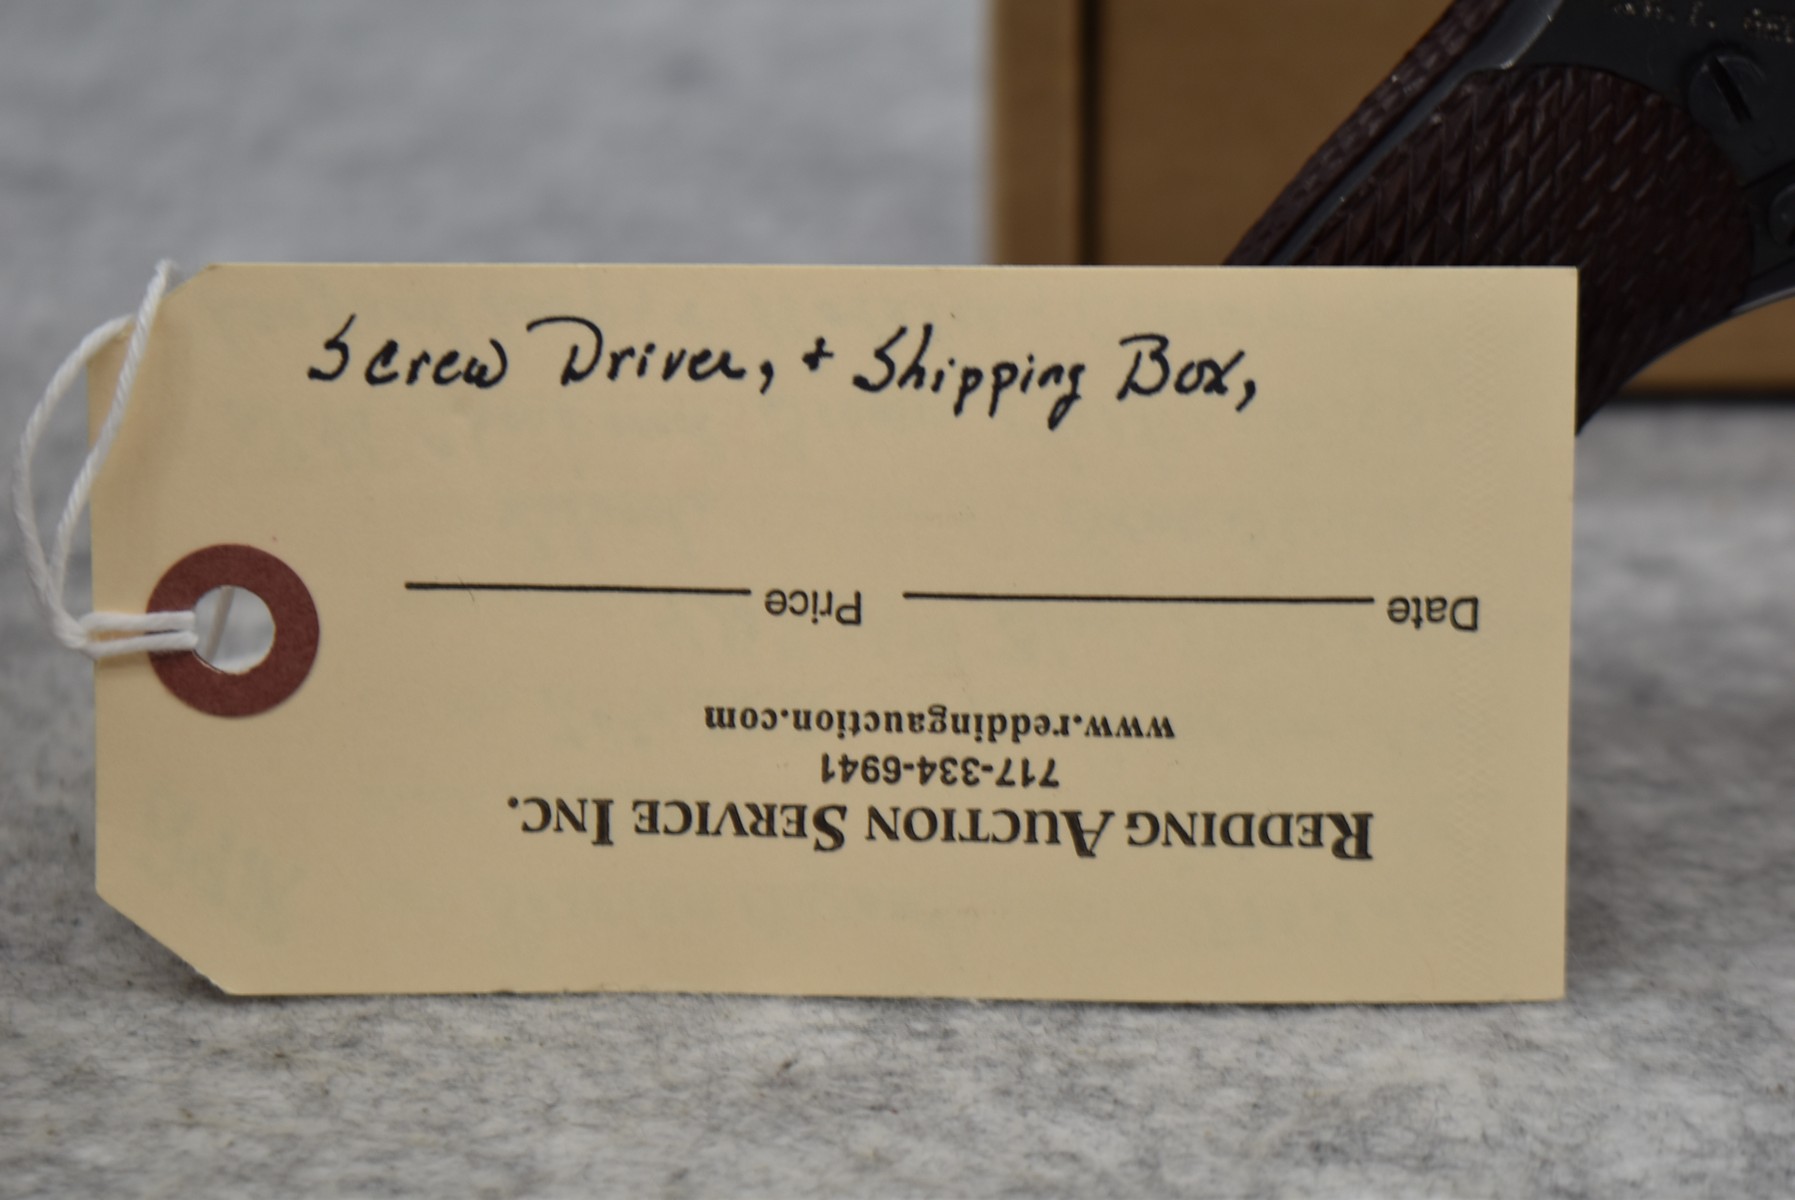 Screw Driver, + Shipping Box,
REDDING AUCTION SERVICE INC.
717-334-6941
www.reddingauction.com
Date Price